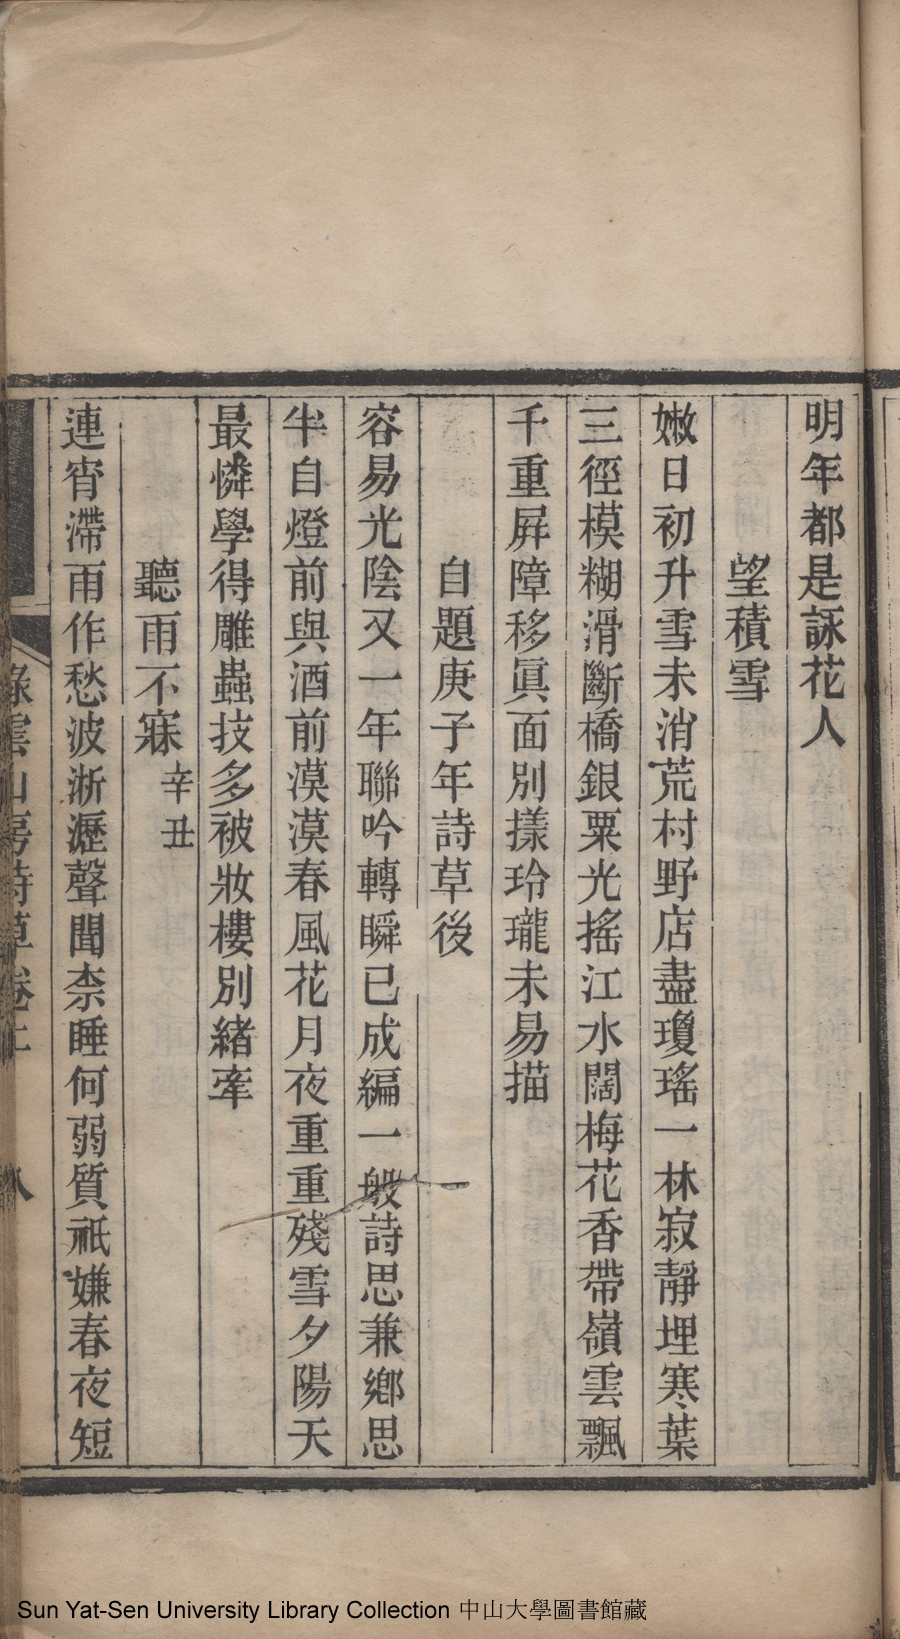 明年都是詠花人
望積雪
嫩日初升雪未消荒村野店盡瓊瑤一林寂靜埋寒葉
三徑模糊滑斷橋銀粟光搖江水闊梅花香帶嶺雲飄
千重屛障移眞面別㨾玲瓏未易描
自題庚子年詩草後
容易光陰又一年聯吟轉瞬已成編一般詩思兼鄉思
半自燈前與酒前漠漠春風花月夜重重殘雪夕陽天
最憐學得雕蟲技多被妝樓別緒牽
聽雨不寐 辛丑
連宵滯雨作愁波淅瀝聲聞柰睡何弱質祇嫌春夜短
綠雲山房詩草卷上
八
Sun Yat-Sen University Library Collection 中山大學圖書館藏